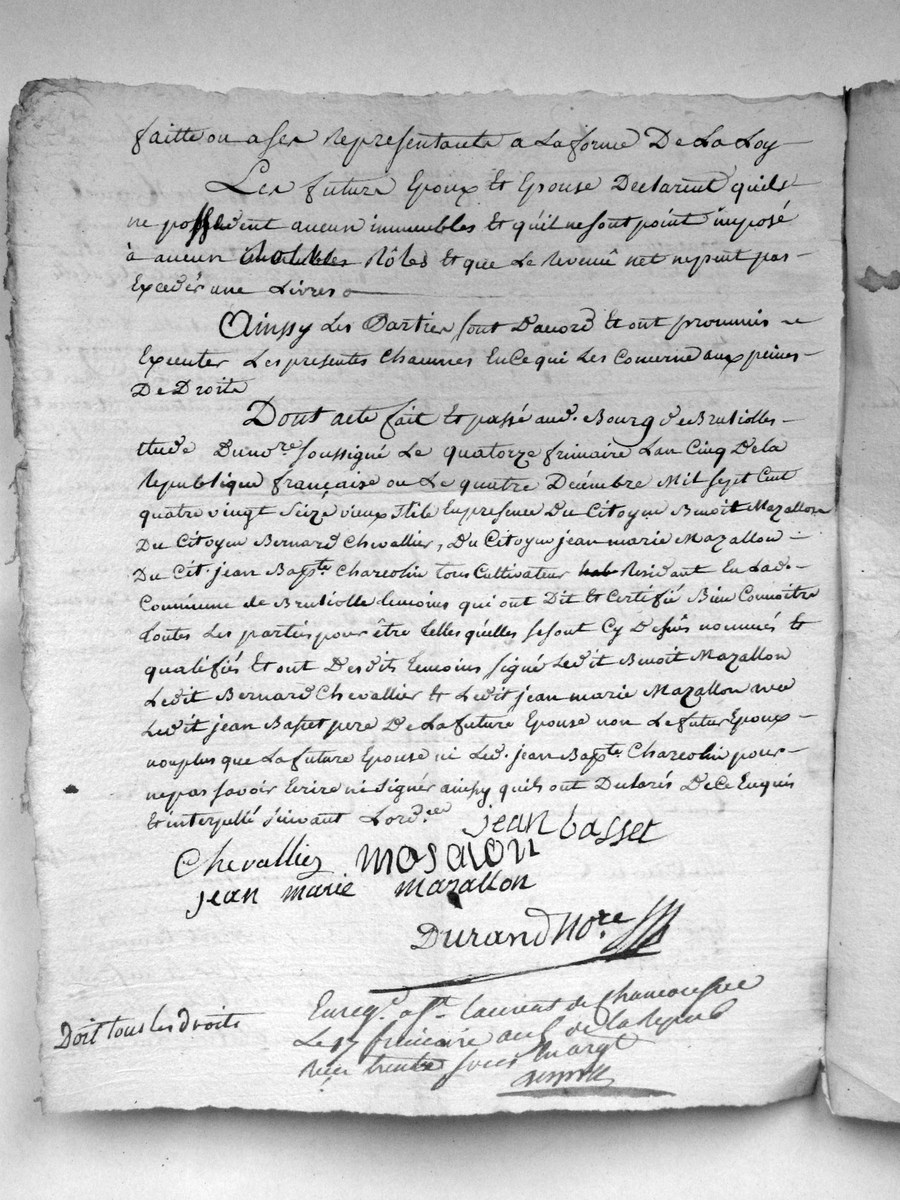 faitte ou a ses representants a La forme De La Loy
Les future Epoux Et Epouse Declarent quils
ne possedent aucun immeubles Et quil ne sont point imposé
à aucun Rôles Et que Le Revenû net nepeut pas
Excedér une Livres
Ainssy Les Parties sont D'acord Et ont prommis
Executer Les presentes Chacunes En Ce qui Les Concerne aux peines
De Droits
Dont acte fait Et passé aud. Bourg de Brusiolles
Etude Du no.re soussigné Le quatorze frimaire Lan Cinq De La
Republique française ou Le quatre Décémbre Mil sept Cent
quatre vingt Seize vieux Stile En presence Du Citoyen Benoit Mazallon
Du Citoyen Bernard Chevallier, Du Citoyen jean marie Mazallon
Du Cit. jean Bap.te Charcolin tous Cultivateur Residant En Lad.
Commune de Brusiolle temoins qui ont Dit Et Certifié Bien Connoitre
toutes Les parties pour être telles quelles se sont Cy Dessûs nommés Et
qualifiés Et ont Desdits temoins signé Ledit Benoit Mazallon
Ledit Bernard Chevallier Et Ledit jean marie Mazallon avec
Ledit jean Basset pere De La future Epouse non Le futur Epoux
nonplus que La future Epouse ni Led. jean Bap.te Charcolin pour
ne pas savoir Ecrire ni Signér ainssy quils ont Declarés De Ce Enquis
Et interpellé suivant Lord.ce
jean basset
Chevallier mosalon
jean marie mazallon
Durand No.re
Enreg.é a S.t Laurent de Chamousset
Le 17 frimaire an 5 de la Repub
Reçu trente sous En argt
Doit tous les droits